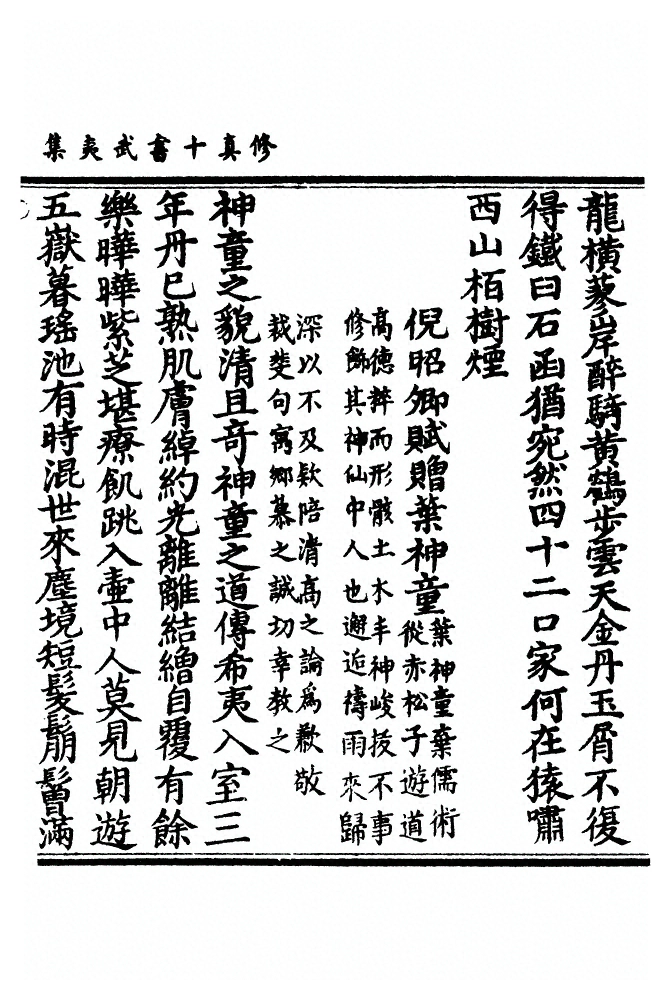 修真十書武夷集
龍橫蓼岸醉騎黃鶴步雲天金丹玉屑不復
得鐵曰石函猶宛然四十二口家何在猿嘯
西山栢樹煙
倪昭卿賦贈葉神童
葉神童棄儒術
從赤松子遊道
高德粹而形骸土木丰神峻拔不事
修飾其神仙中人也邂逅禱雨來歸
深以不及欵陪清高之論爲歉敬
裁斐句寓鄉慕之誠切幸教之
神童之貌清且奇神童之道傳希夷入室三
年丹已熟肌膚綽約光離離結繒自覆有餘
樂曄曄紫芝堪療飢跳入壺中人莫見朝遊
五嶽暮瑤池有時混世來塵境短髮鬅鬙滿